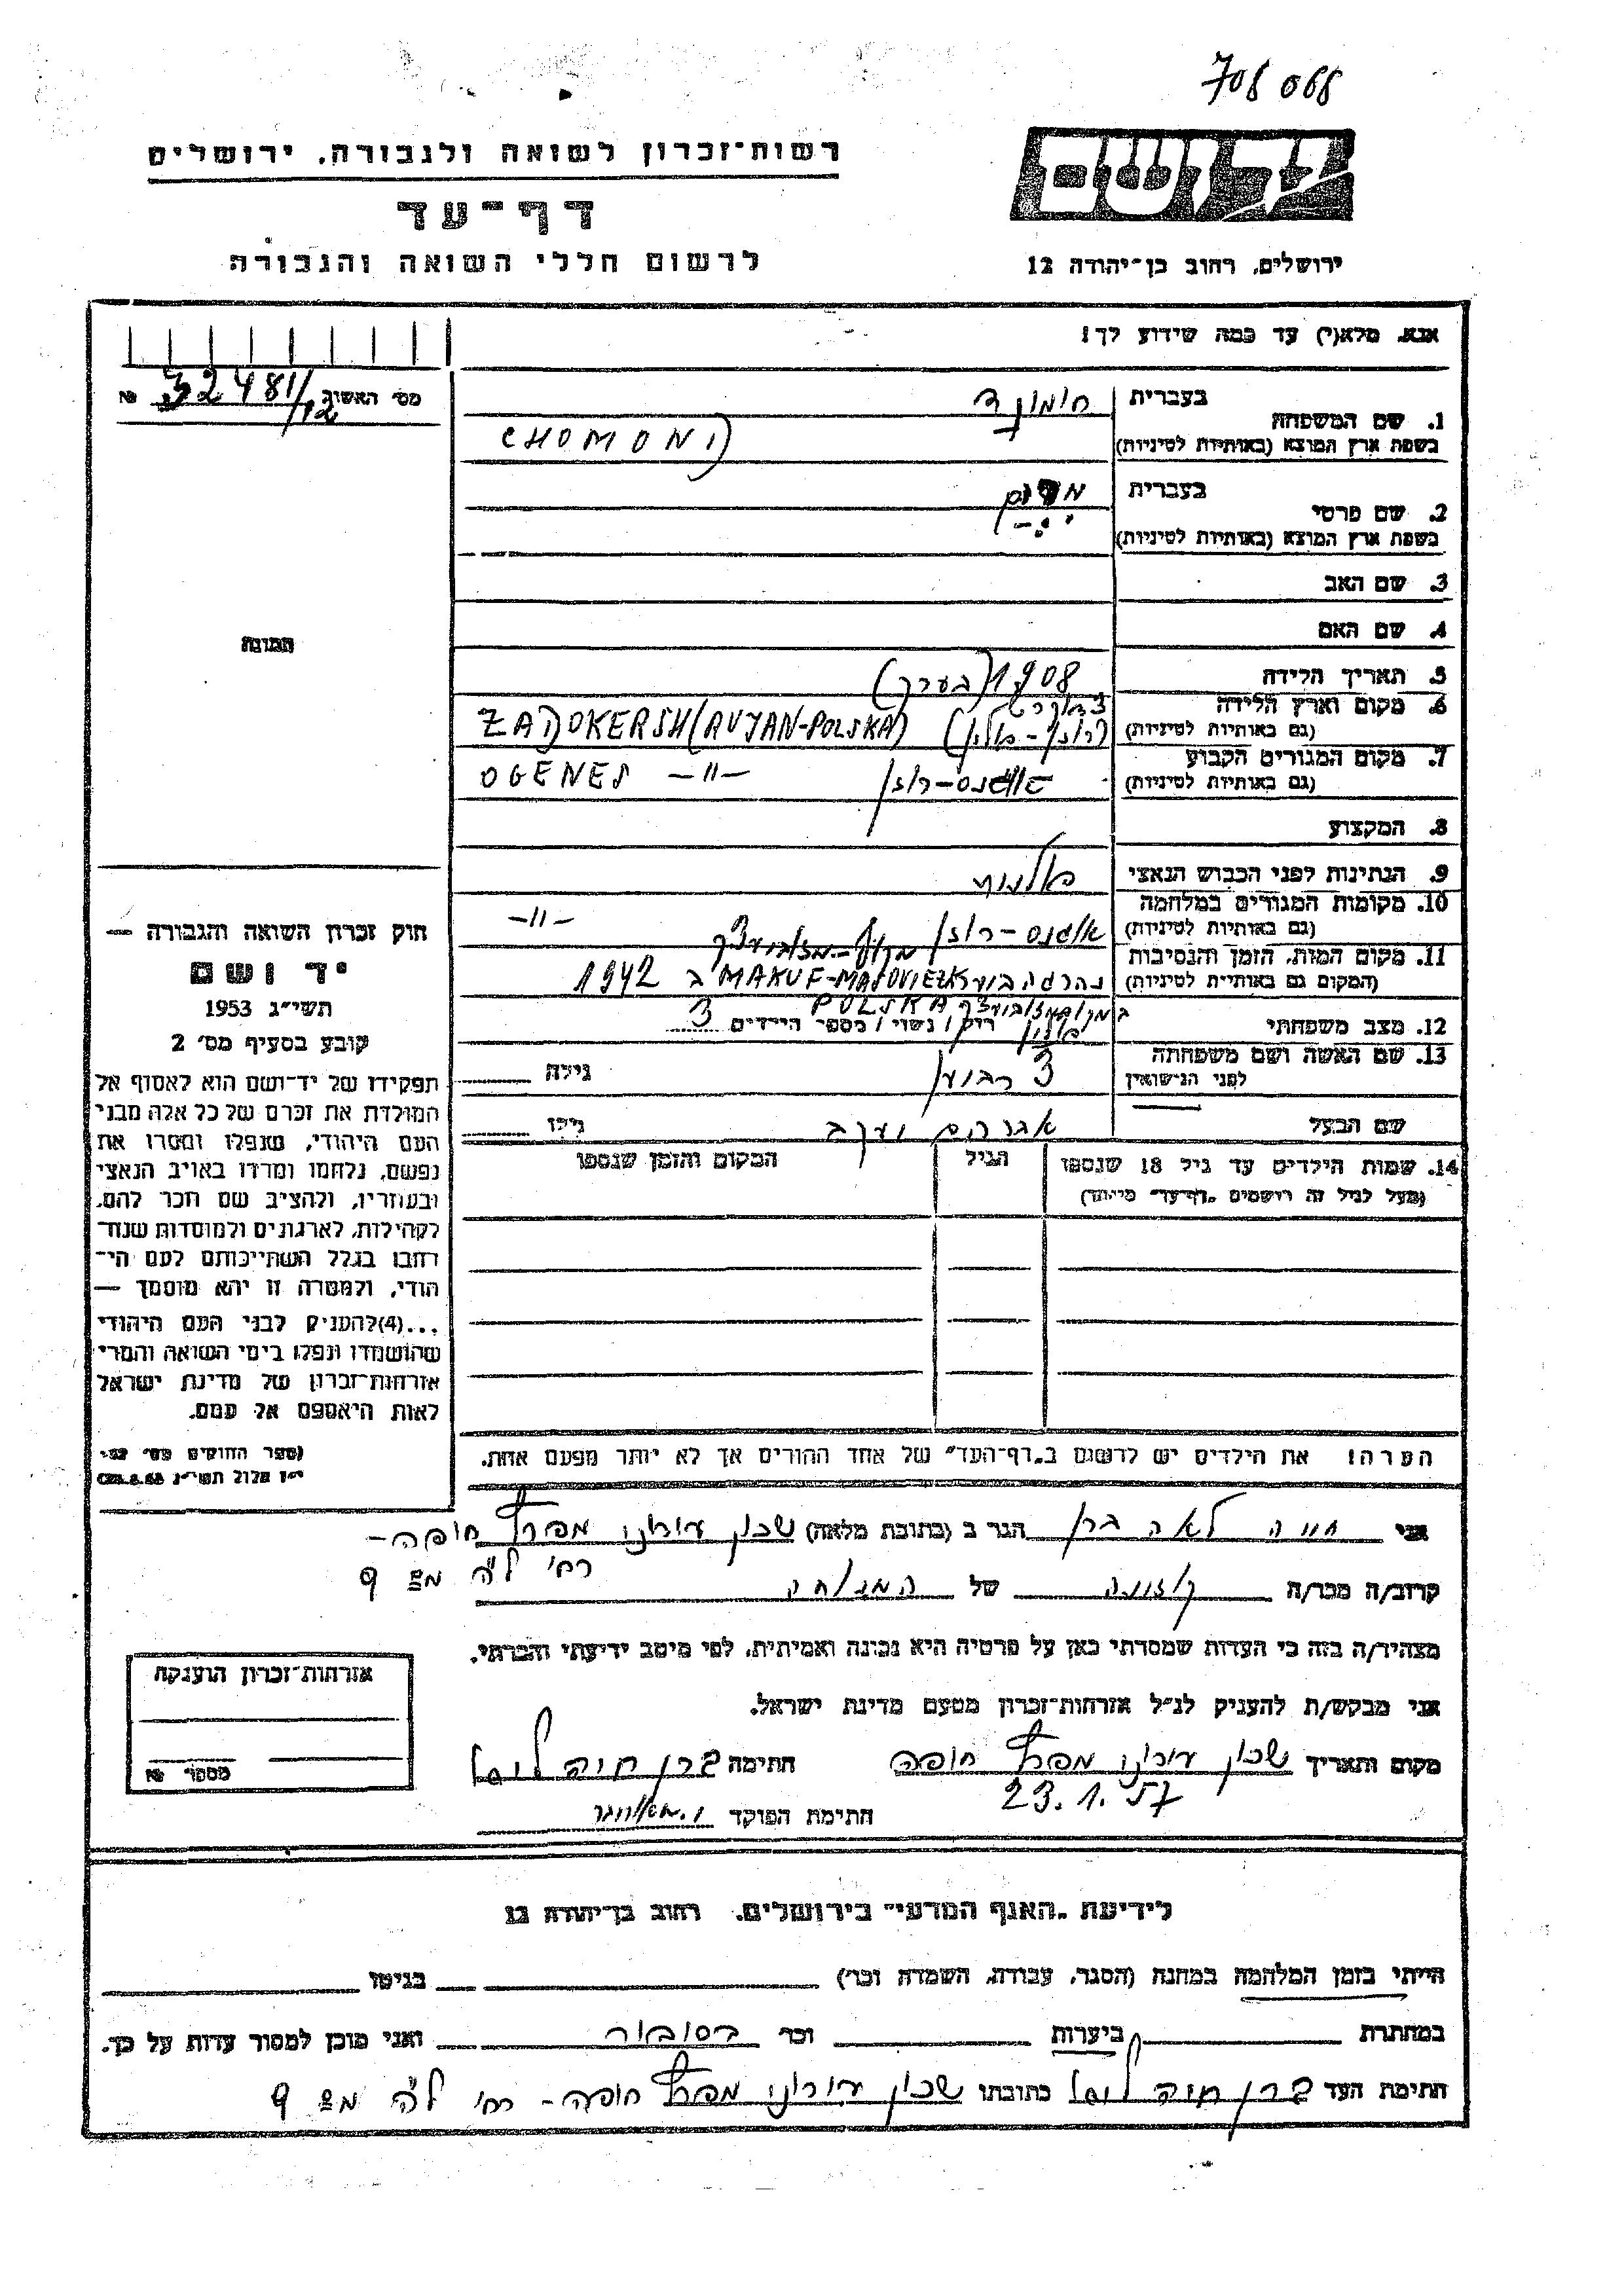 708 068
רשות־זכרון לשואה ולגבורה, ירושלים
דף־עד
לרשום חללי השואה והגבורה
יד ושם
ירושלים, רחוב בן־יהודה 12
אנא, מלא(י) עד כמה שידוע לך!
מס׳ האשיו 32481/12 №
1. שם המשפחה
בעברית חומונד
בשפת ארץ המוצא (באותיות לטיניות) CHOMOND
2. שם פרטי
בעברית
בשפת ארץ המוצא (באותיות לטיניות)
3. שם האב
4. שם האם
תמונה
5. תאריך הלידה 1908 (בערך)
6. מקום וארץ הלידה
(גם באותיות לטיניות) ZADOKERSH (RUJAN-POLSKA)
7. מקום המגורים הקבוע
(גם באותיות לטיניות) OGENES –״–
8. המקצוע
9. הנתינות לפני הכבוש הנאצי פולנית
10. מקומות המגורים במלחמה
(גם באותיות לטיניות) –״–
11. מקום המות, הזמן והנסיבות
(המקום גם באותיות לטיניות) MAKUF-MASOVIEZK ב 1942
POLSKA
12. מצב משפחתי רוק / נשוי / מספר הילדים 3
13. שם האשה ושם משפחתה
לפני הנישואין גילה
שם הבעל אברהם יעקב גילו
14. שמות הילדים עד גיל 18 שנספו
(מעל לגיל זה רושמים „דף־עד״ מיוחד)
הגיל
המקום והזמן שנספו
חוק זכרון השואה והגבורה —
יד ושם
תשי״ג 1953
קובע בסעיף מס׳ 2
תפקידו של יד־ושם הוא לאסוף אל
המולדת את זכרם של כל אלה מבני
העם היהודי, שנפלו ומסרו את
נפשם, נלחמו ומרדו באויב הנאצי
ובעוזריו, ולהציב שם וזכר להם,
לקהילות, לארגונים ולמוסדות שנח־
רבו בגלל השתייכותם לעם הי־
הודי, ולמטרה זו יהא מוסמך —
...(4) להעניק לבני העם היהודי
שהושמדו ונפלו בימי השואה והמרי
אזרחות־זכרון של מדינת ישראל
לאות היאספם אל עמם.
(ספר החוקים מס׳ 132,
י״ז אלול תשי״ג 28.8.53)
הערה: את הילדים יש לרשום ב„דף־העד״ של אחד ההורים אך לא יותר מפעם אחת.
אני חיה לאה ברן הגר ב (כתובת מלאה) שכון עירוני מפרץ חיפה–
רח׳ ל״ה מס 9
קרוב/ה מכר/ה של המנוחה
מצהיר/ה בזה כי העדות שמסרתי כאן על פרטיה היא נכונה ואמיתית, לפי מיטב ידיעתי והכרתי.
אני מבקש/ת להעניק לנ״ל אזרחות־זכרון מטעם מדינת ישראל.
מקום ותאריך שכון עירוני מפרץ חיפה חתימה ברן חיה
23.1.57
חתימת הפוקד
אזרחות־זכרון הוענקה
מספר №
לידיעת „האגף המדעי״ בירושלים, רחוב בן־יהודה 12
הייתי בזמן המלחמה במחנה (הסגר, עבודה, השמדה וכו׳) בגיטו
במחתרת ביערות וכו׳ בסיביר ואני מוכן למסור עדות על כך.
חתימת העד ברן חיה כתובתו שכון עירוני מפרץ חיפה – רח׳ ל״ה מס 9